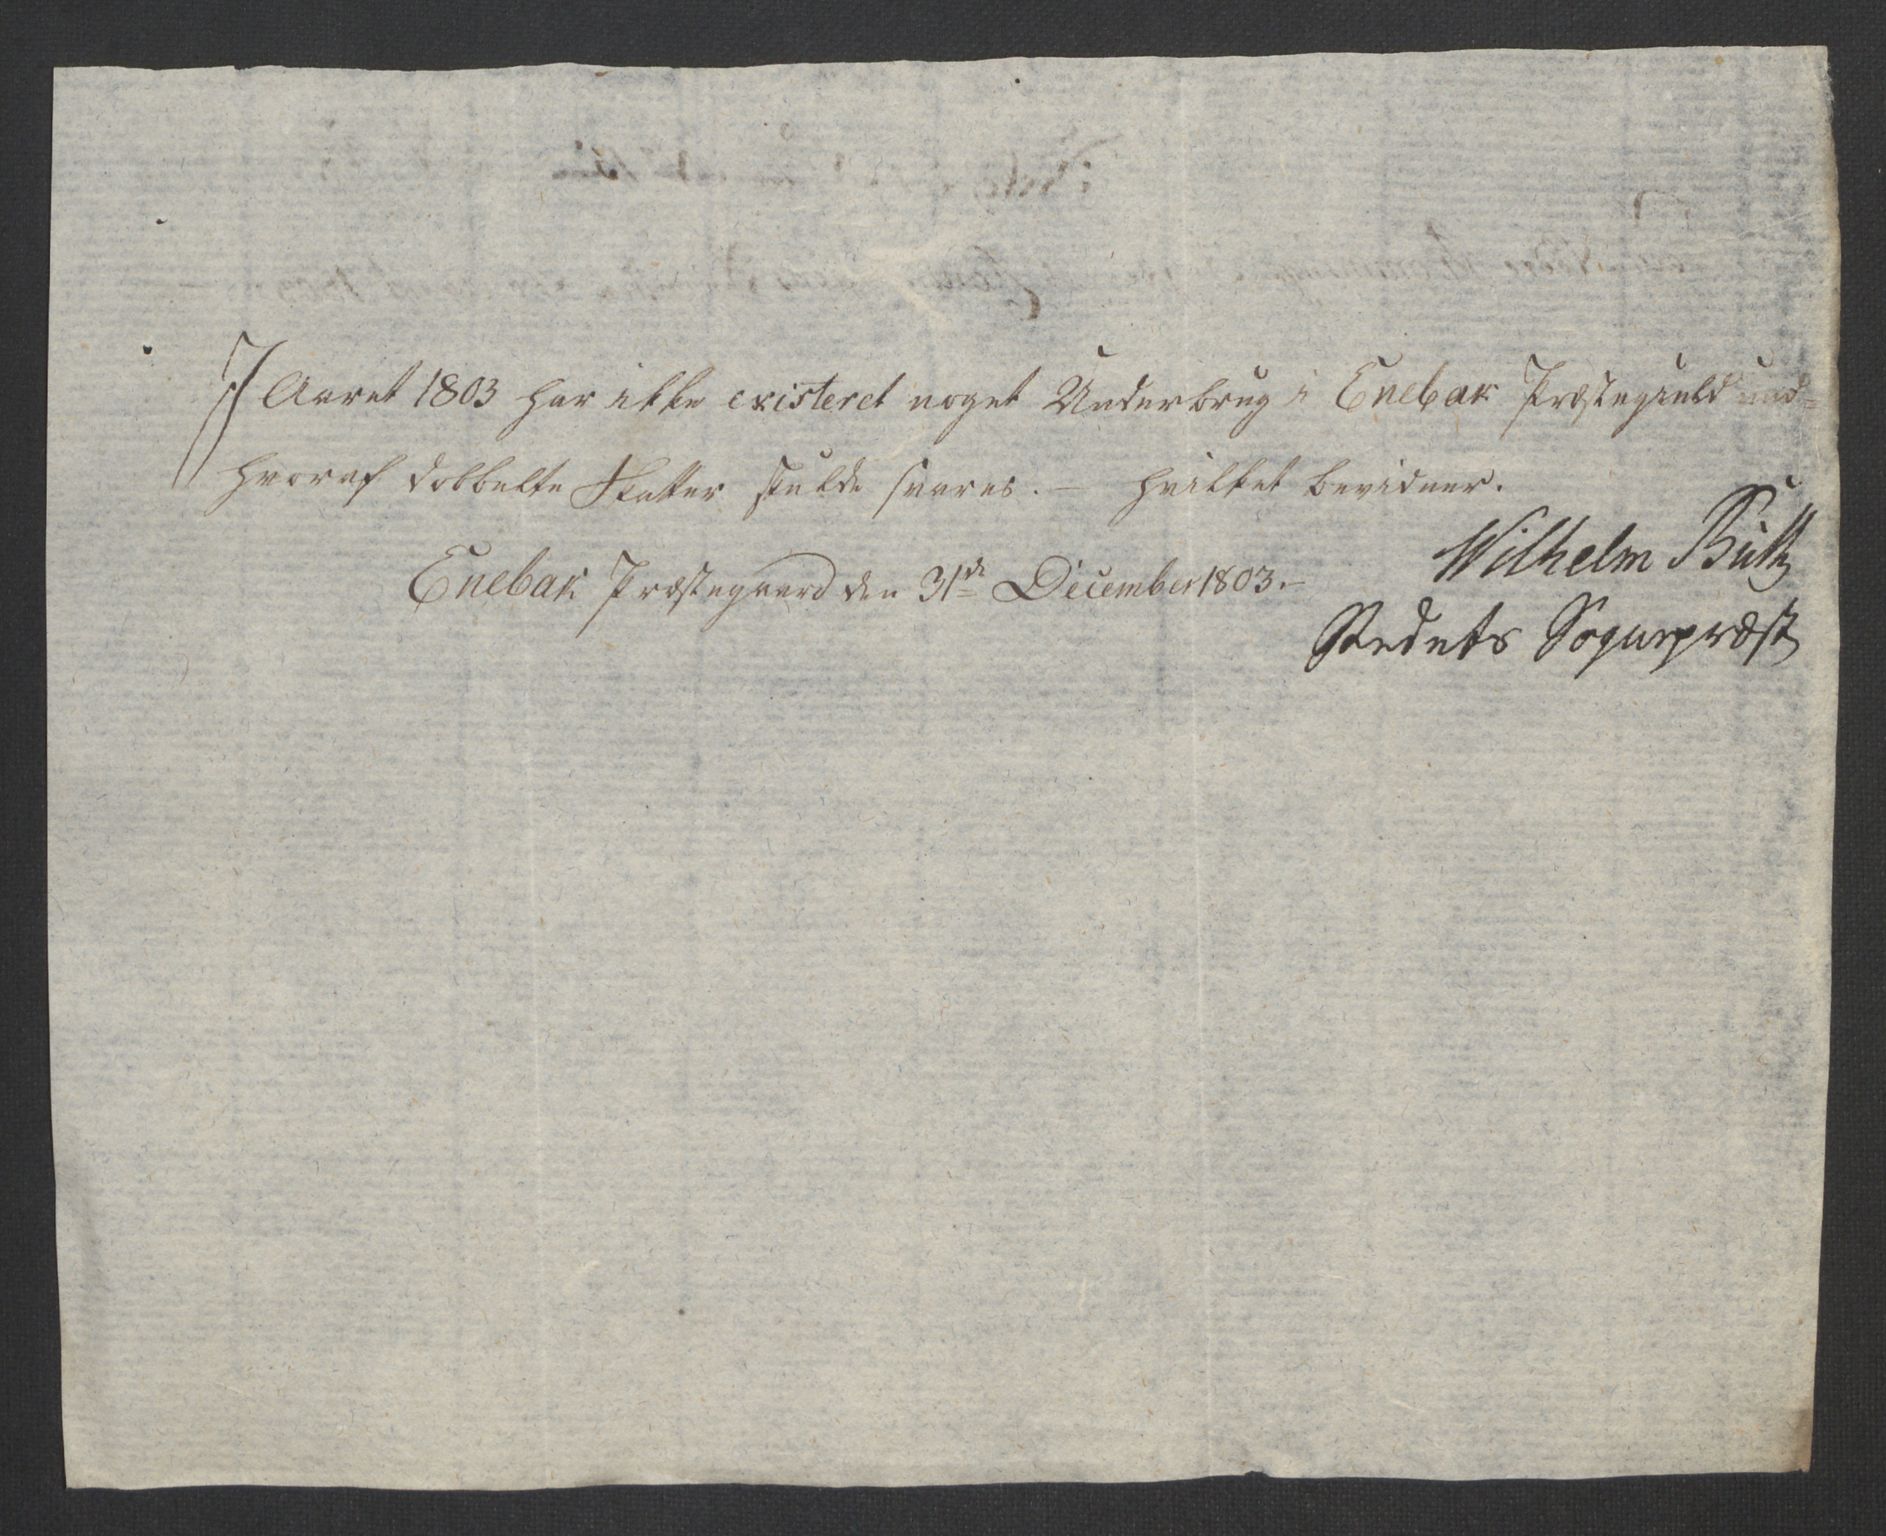 I Aaret 1803 har ikke existeret noget Underbrug i Enebak Præstegield
hvoraf dobbelte Skatter skulde svares. — hvilket bevidner.
Enebak Præstegaard den 31de December 1803.–
Wilhelm
Stedets Sognepræst